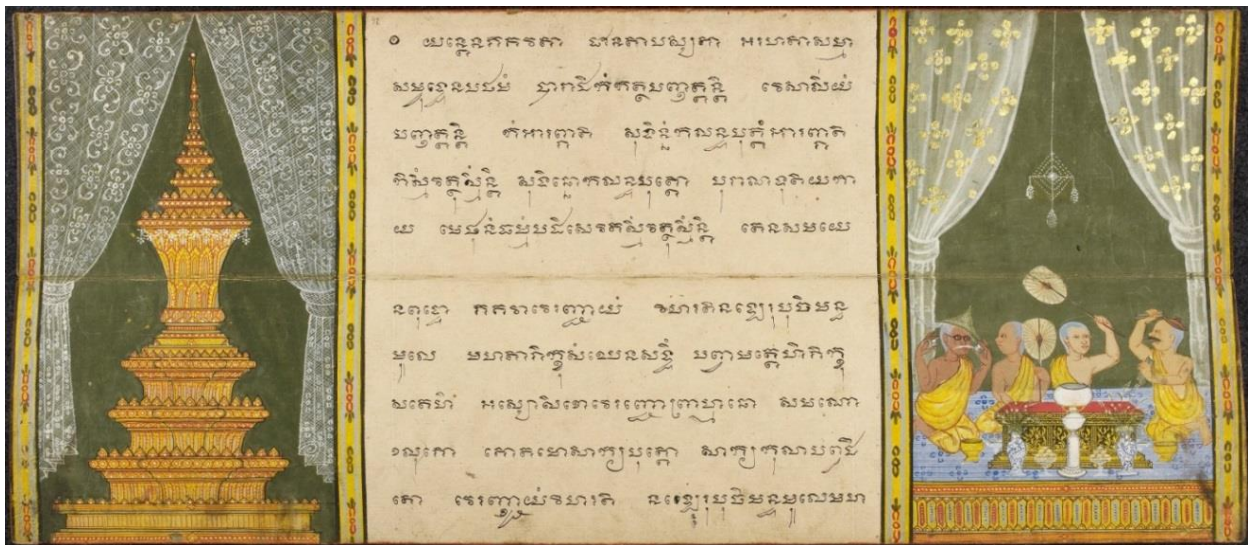 ๏ យន្តេនភគវតា ជានតាបស្សតា អរហតាសម្មា
សម្ពុទ្ធេនបឋមំ បារាជិកំកត្ថបញ្ញត្តន្តិ វេសាលិយំ
បញ្ញត្តន្តិ កំអារព្ភាតិ សុទិន្នំកលន្ទបុត្តំអារព្ភាតិ
កិស្មិំវត្ថុស្មិន្តិ សុទិន្នោកលន្ទបុត្តោ បុរាណទុតិយិកា
យ មេថុនំធម្មំបដិសេវតស្មិំវត្ថុស្មិន្តិ តេនសមយេ
នពុទ្ធោ ភគវាវេរញ្ជាយំ វិហរតិនឡេរុបុចិមន្ទ
មូលេ មហតាភិក្ខុសំឃេនសទ្ធិំ បញ្ចមត្តេហិភិក្ខុ
សតេហិ អស្សោសិខោវេរញ្ជោព្រាហ្មណោ សមណោ
ខលុភោ គោតមោសក្យបុត្តោ សក្យកុលាបព្វជិ
តោ វេរញ្ជាយំវិហរតិ នឡេរុបុចិមន្ទមូលេមហ